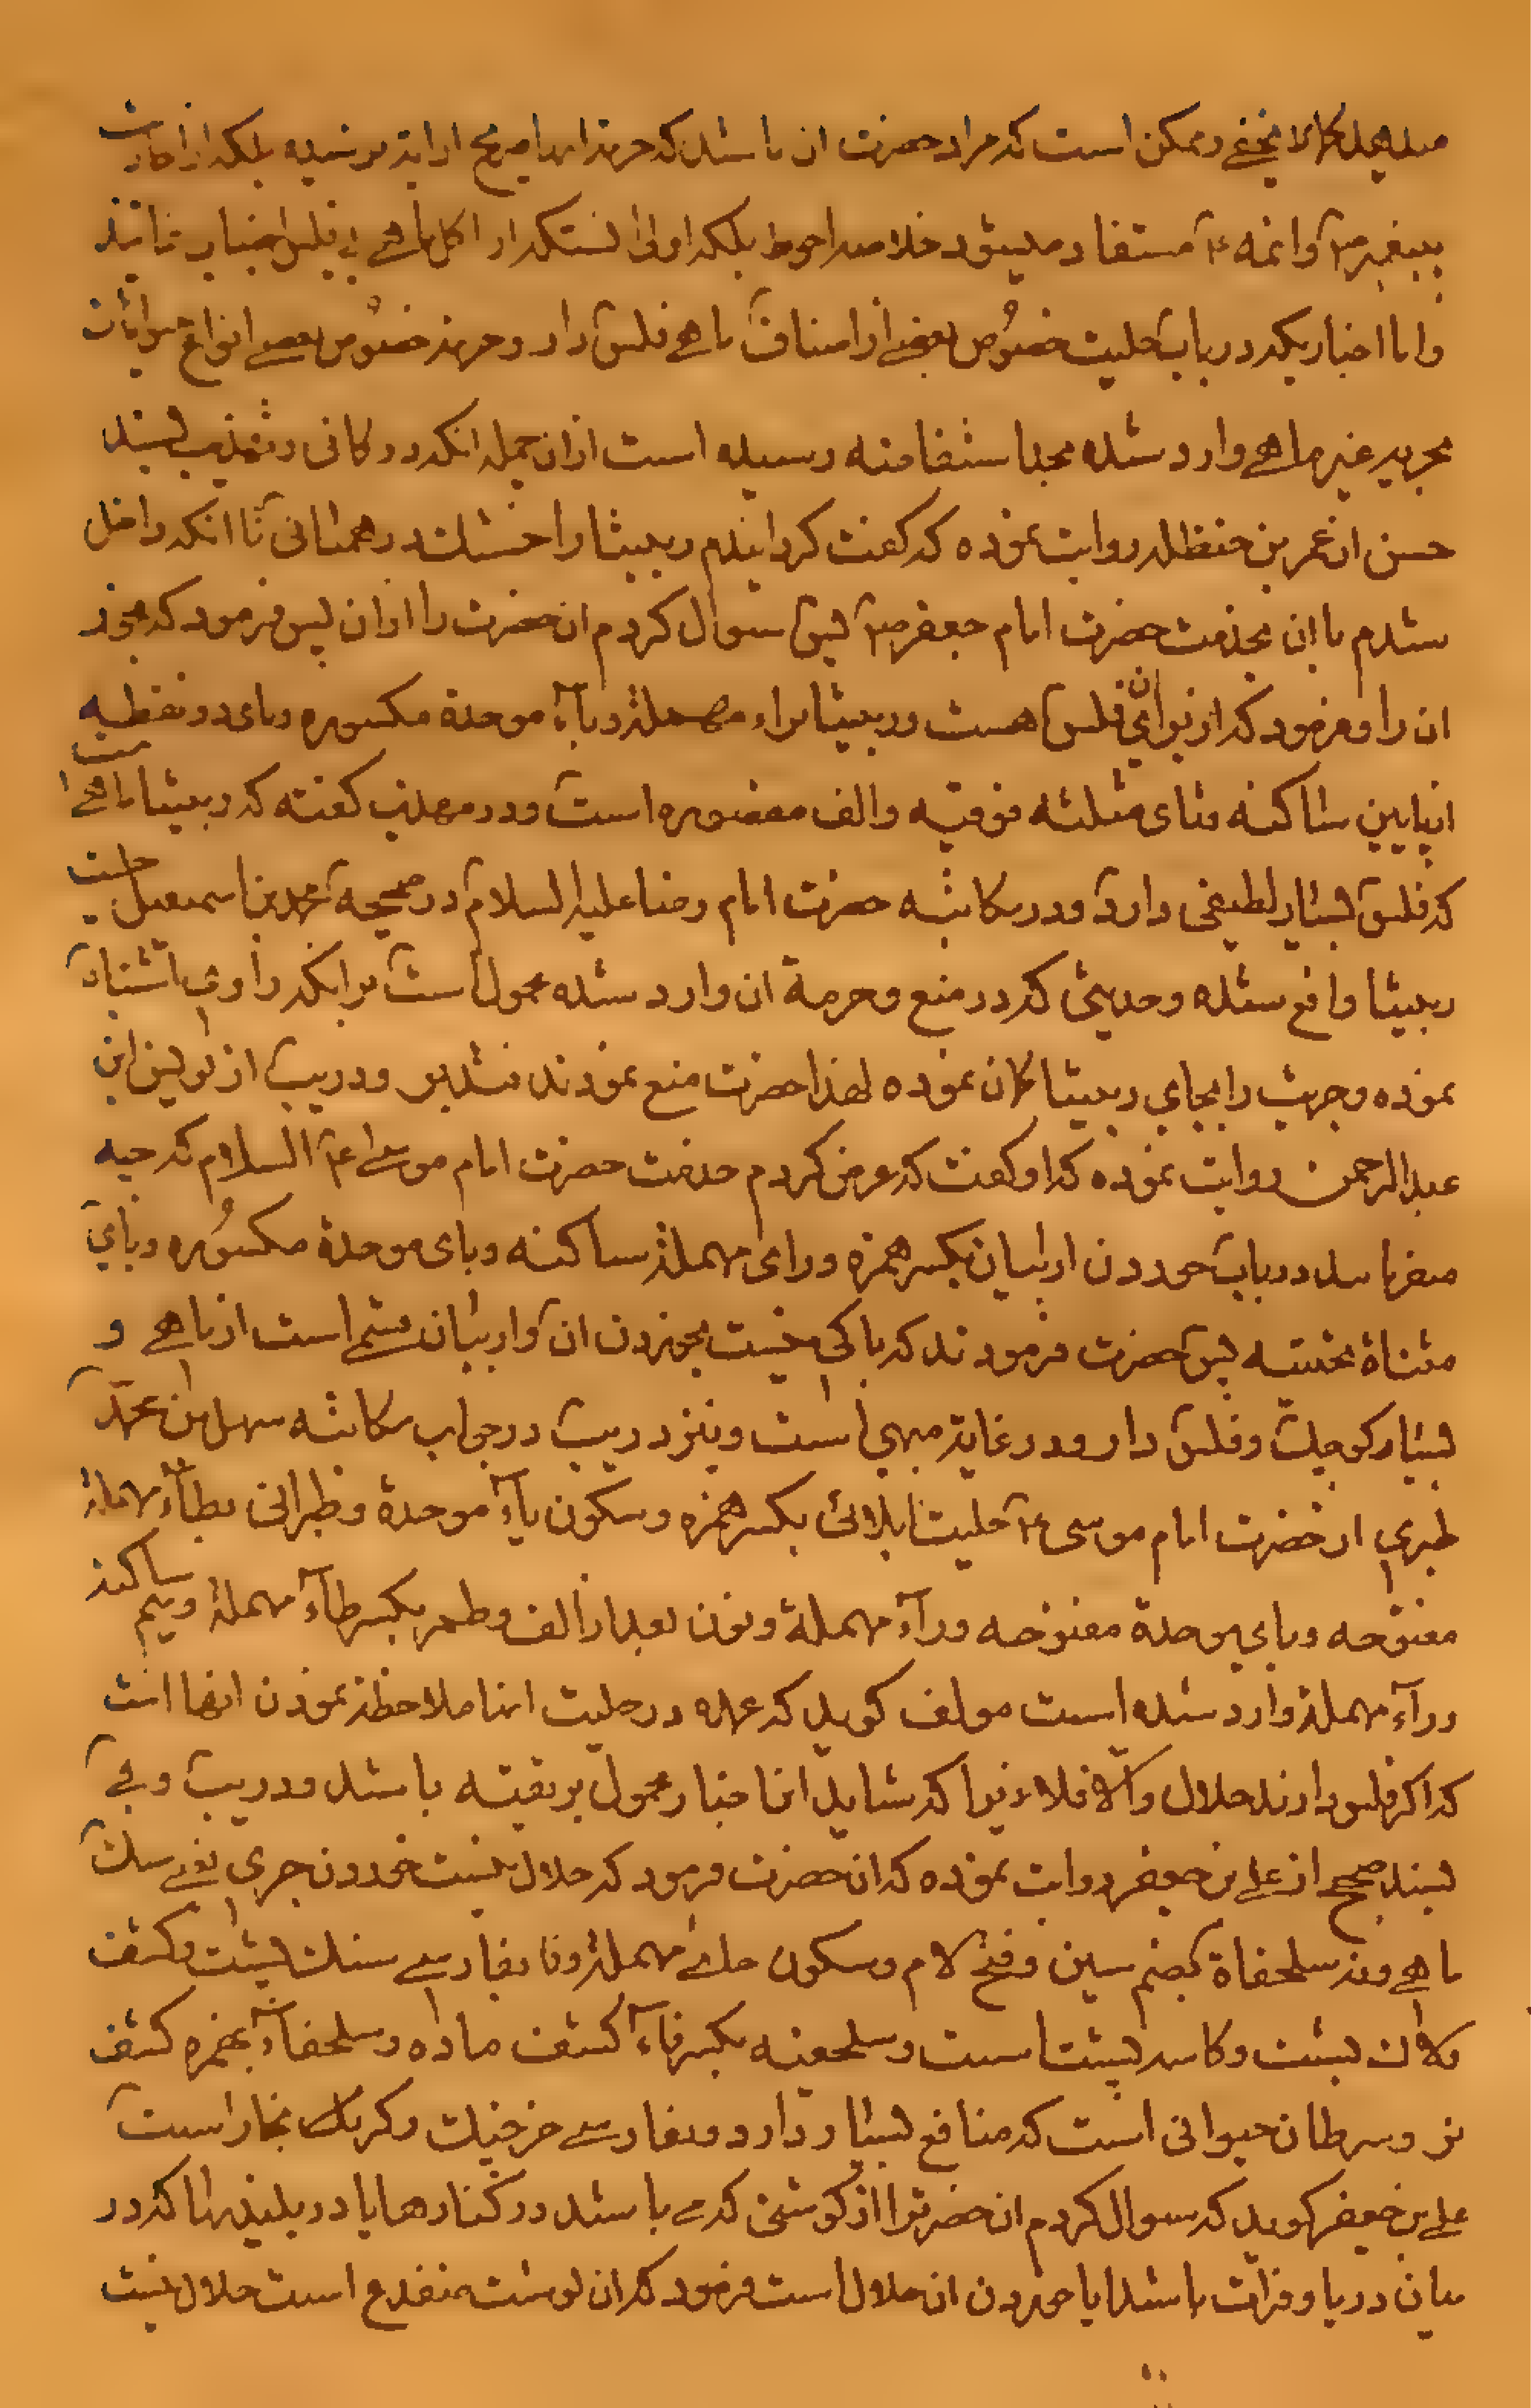 میدهد کما لا یخفی و ممکن است که مراد حضرت ان باشد که حرمة اینها صریح از ایة نرسیده بلکه از احادیث
پیغمبر ص و ائمه ع مستفاد میشود خلاصه احوط بلکه اولی انستکه از اکل ماهی بی فلس اجتناب نمایند
و اما اخباریکه در باب حلیت خصوص بعضی از اصناف ماهی فلس دار و حرمة خصوص بعضی انواع حیوانات
بحریه غیر ماهی وارد شده بحد استفاضه رسیده است از ان جمله انکه در کافی و تهذیب بسند
حسن از عمر بن حنظله روایت نموده که کفت کردانیدم ربیثا را خشک در همیانی تا انکه داخل
شدم با ان بخدمت حضرت امام جعفر ص پس سوال کردم ان حضرت را از ان پس فرمود که بخور
ان را و فرمود که از برای ان فلس هست و ربیثا براء مهملة و بآء موحدة مکسوره و یای دو نقطه
از پایین ساکنه و ثای مثلثه فوقیه والف مقصوره است و در مهذب کفته که ربیثا ماهی است
که فلس بسیار لطیفی دارد و در مکاتبه حضرت امام رضا علیه السلام در صحیحه محمد بن اسمعیل حلیت
ربیثا واقع شده و حدیثی که در منع و حرمة ان وارد شده محمول است بر انکه راوی اشتباه
نموده و جریث را بجای ربیثا کمان نموده لهذا حضرت منع نمودند فتدبر و در یب از یونس ابن
عبد الرحمن روایت نموده که او کفت که عرض کردم خدمت حضرت امام موسی ع السلام که چه
میفرماید در باب خوردن اربیان بکسر همزه و رای مهملة ساکنه و بای موحدة مکسوره و یای
مثناة تحتیه پس حضرت فرمودند که باکی نیست بخوردن ان و اربیان قسمی است از ماهی و
بسیار کوچک و فلس دار و در غایة مبهی است و نیز در یب در جواب مکاتبه سهل ابن محمد
طبری از حضرت امام موسی ع حلیت ابلائی بکسر همزه و سکون بآء موحدة و طبرانی بطآء مهملة
مفتوحه و بای موحدة مفتوحه و رآء مهملة و نون بعد از الف و طمر بکسر طآء مهملة و میم ساکنه
و رآء مهملة وارد شده است مولف کوید که عمده در حلیت اینا ملاحظه نمودن انها است
که اکر فلس دارند حلال والا فلاء زیرا که شاید این اخبار محمول بر تقیه باشد و در یب و فی
بسند صحیح از علی بن جعفر روایت نموده که ان حضرت فرمود که حلال نیست خوردن جری یعنی سک
ماهی و نه سلحفاة بضم سین و فتح لام و سکون حاء مهملة و فا بفارسی سنک پشت و کشف
و لاک پشت و کاسه پشت است و سلحفیه بکسر فاء کشف ماده و سلحفآء بهمزه کشف
نر و سرطان حیوانی است که منافع بسیار دارد و بفارسی خرچنک و کربک بخار است
علی بن جعفر کوید که سوال کردم ان حضرت را از کوشتی که می باشد در کنارها یا در بلندیها که در
میان دریا و فرات باشد ایا خوردن ان حلال است فرمود که ان کوشت ضفدع است حلال نیست